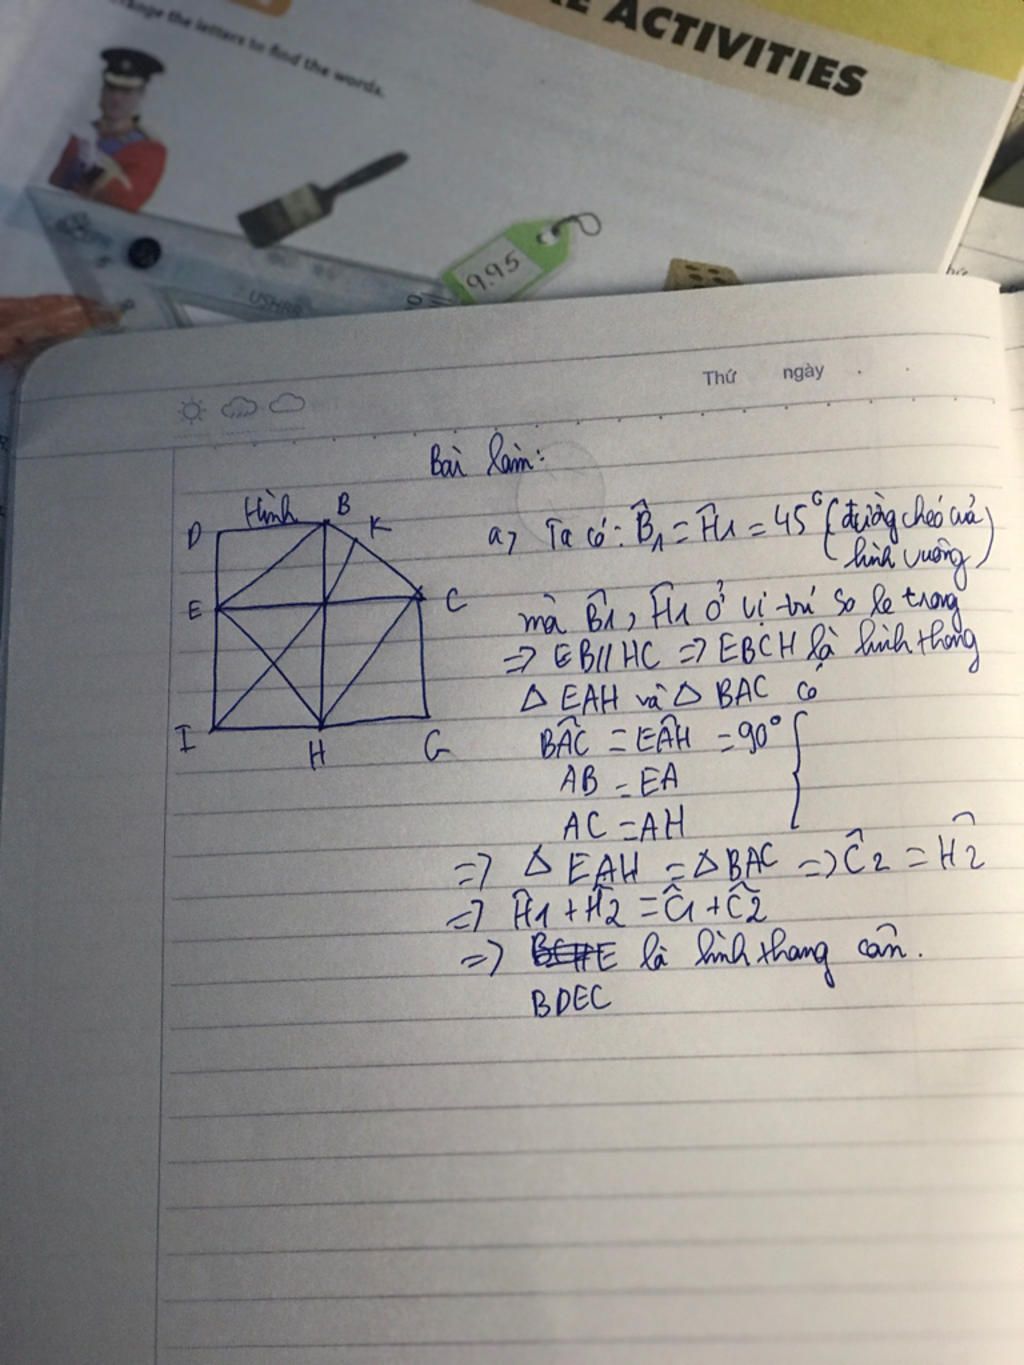 ACTIVITIES
the letters to find the words.
9.95
Thứ ngày
Bài làm:
Hình
D B K
E C
I H G
a, Ta có: B̂1 = Ĥ1 = 45° (đường chéo của hình vuông)
mà B̂1, Ĥ1 ở vị trí so le trong
=> EB // HC => EBCH là hình thang
Δ EAH và Δ BAC có
BÂC = EÂH = 90°
AB = EA
AC = AH
=> Δ EAH = Δ BAC => Ĉ2 = Ĥ2
=> Ĥ1 + Ĥ2 = Ĉ1 + Ĉ2
=> là hình thang cân.
BDEC